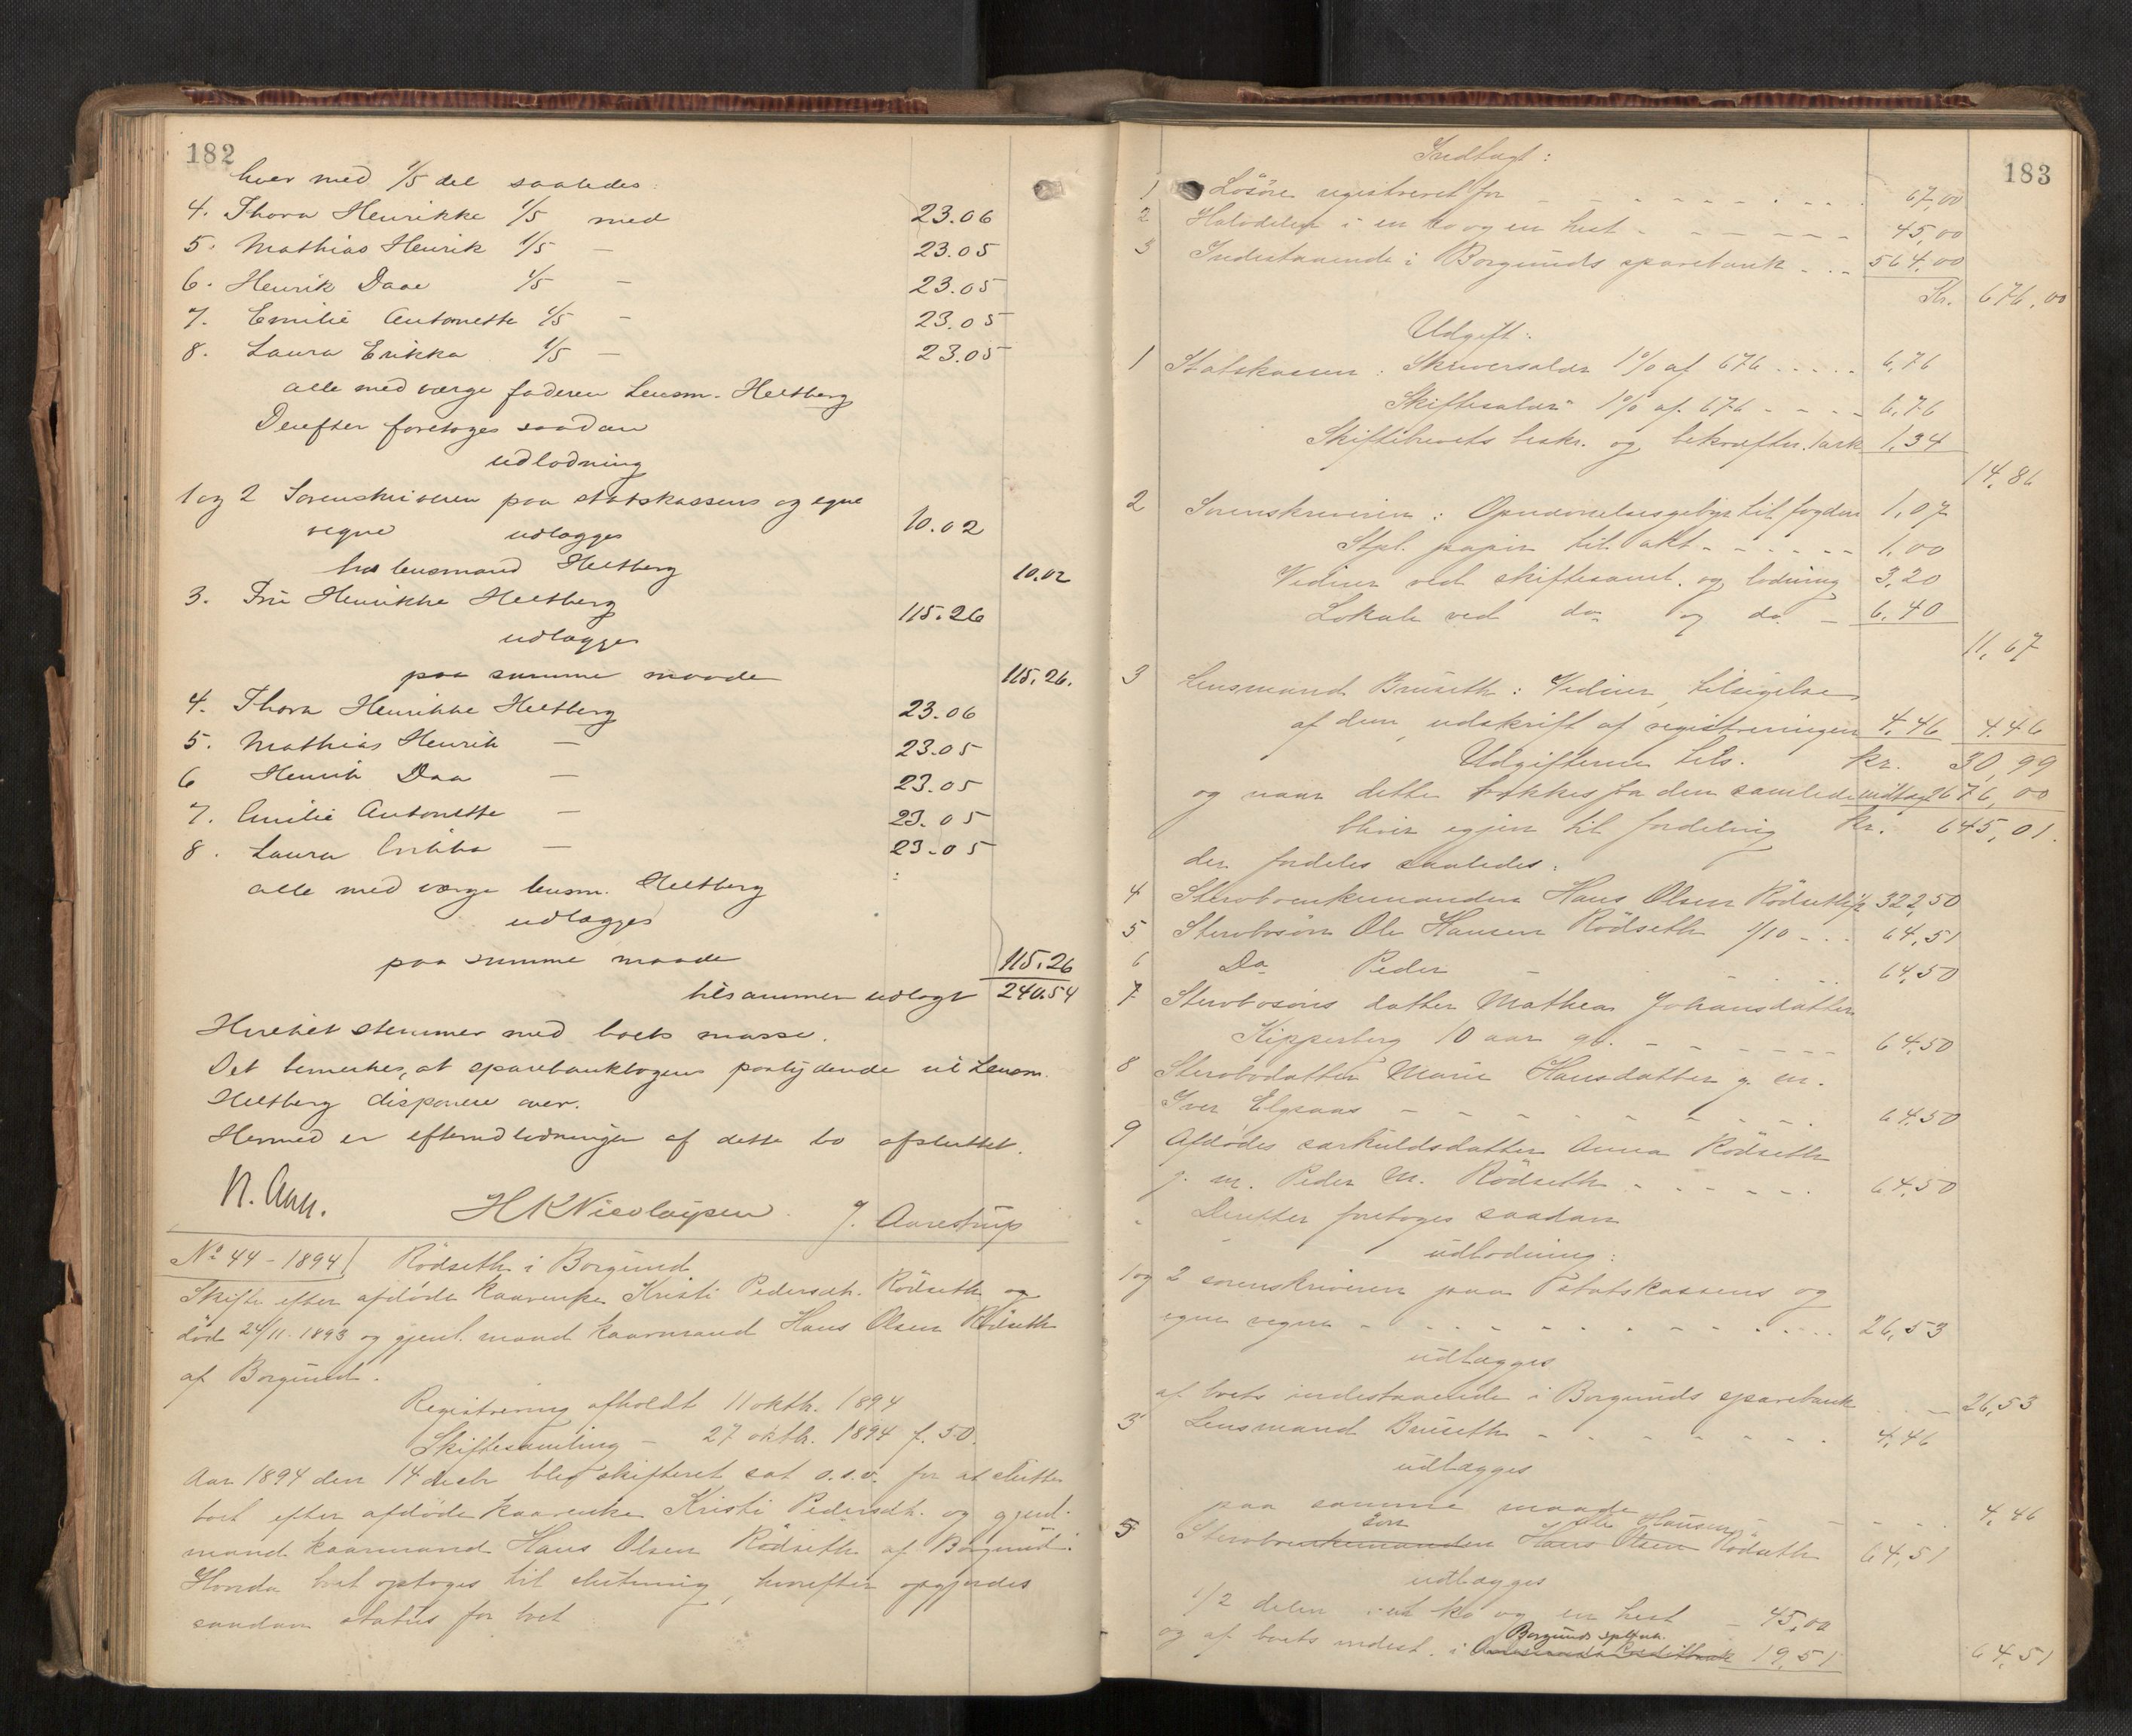 182
hver med 1/5 del saaledes:
4. Thora Henrikke 1/5 med 23.06
5. Mathias Henrik 1/5 — 23.05
6. Henrik Daae 1/5 — 23.05
7. Emilie Antonette 1/5 — 23.05
8. Laura Erikka 1/5 — 23.05
alle med værge faderen Lensm. Heltberg
Derefter foretoges saadan
udlodning
1 og 2 Sorenskriveren paa statskassens og egne
vegne 10.02
udlægges
hos lensmand Heltberg 10.02
3. Fru Henrikke Heltberg 115.26
udlægges
paa samme maade 115.26.
4. Thora Henrikke Heltberg 23.06
5. Mathias Henrik — 23.05
6 Henrik Daa — 23.05
7. Emilie Antonette — 23.05
8. Laura Erikka — 23.05
alle med værge lensm. Heltberg
udlægges
paa samme maade 115.26
tilsammen udlagt 240.54
Hvilket stemmer med boets masse.
Det bemerkes, at sparebankbogens paalydende vil Lensm.
Heltberg disponere over.
Hermed er efterudlodningen af dette bo afsluttet.
H K Nicolaysen. J. Aarestrup
No 44 - 1894 Rödseth i Borgund
Skifte efter afdöde kaarenke Kristi Pedersdt. Rödseth og
död 24/11 1893 og gjenl. mand kaarmand Hans Olsen Rödseth
af Borgund.
Registrering afholdt 11 oktb. 1894
Skiftesamling — 27 oktb. 1894 f. 50.
Aar 1894 den 14 decbr blev skifteret sat o.s.v. for at slutte
boet efter afdöde kaarenke Kristi Pedersdt. og gjenl.
mand kaarmand Hans Olsen Rödseth af Borgund.
Hvorda boet optoges til slutning, hvorefter opgjordes
saadan status for boet
183
Indtægt:
1 Lösöre registreret for 67,00
2 Halvdelen i en ko og en hest 45,00
3 Indestaaende i Borgunds sparebank 564,00
Kr. 676,00
Udgift:
1 Statskassen: Skriversalær 1% af 676 6,76
Skiftesalær 1% af 676 6,76
Skiftebrevets beskr. og bekræftr. 1 ark 1,34
14,86
2 Sorenskriveren: Opnævnelsesgebyr til fogden 1,07
Stpl. papir til akt 1,00
Vidner ved skiftesaml. og lodning 3,20
Lokale ved do og do 6,40
11,67
3 Lensmand Bruseth: Vidner, tilsigelse
af dem, udskrift af registreringen 4,46 4.46
Udgifterne tils. kr. 30,99
og naar dette trækkes fra den samlede indtægt 676,00
bliver igjen til fordeling kr. 645,01.
der fordeles saaledes:
4 Stervboenkemanden Hans Olsen Rödseth 1/2 322,50
5 Stervbosön Ole Hansen Rödseth 1/10 64,51
6 Do Peder — 64,50
7 Stervbosöns datter Mathea Johansdatter
Kipperberg 10 aar gl. 64,50
8 Stervbodatter Marie Hansdatter g. m.
Iver Elgsaas 64,50
9 Afdödes særkuldsdatter Anna Rödseth
g. m. Peder M. Rödseth 64,50
Derefter foretoges saadan
udlodning:
1 og 2 sorenskriveren paa Statskassens og
egne vegne 26,53
udlægges
af boets indestaaende i Borgunds sparebank 26,53
3 Lensmand Bruseth 4,46
udlægges
paa samme maade 4,46
sön Ole Hansen
5 Stervboenkemanden Hans Olsen Rödseth 64,51
udlægges
1/2 delen i en ko og en hest — 45,00
Borgunds spbank
og af boets indest. i 19,51 64,51